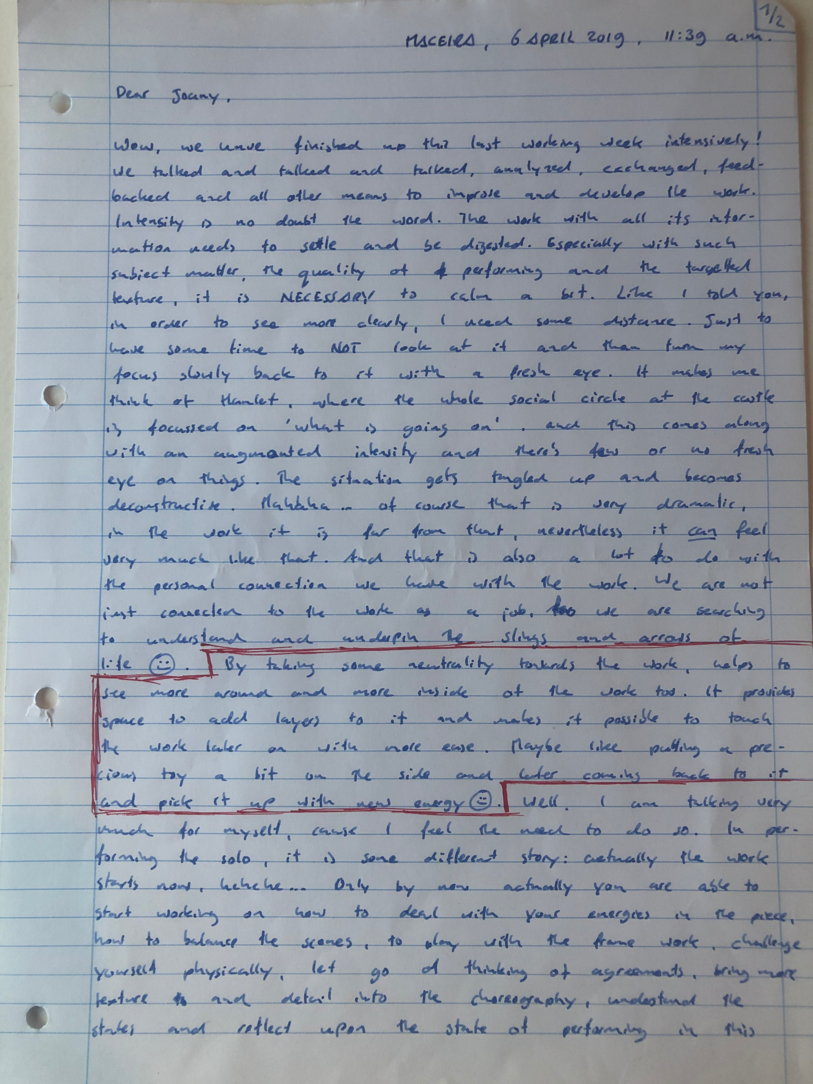 1/2
MACEIRA, 6 APRIL 2019, 11:39 a.m.
Dear Joany,
Wow, we have finished up this last working week intensively!
We talked and talked and talked, analyzed, exchanged, feed-
backed and all other means to improve and develop the work.
Intensity is no doubt the word. The work with all its infor-
mation needs to settle and be digested. Especially with such
subject matter, the quality of performing and the targetted
texture, it is NECESSARY to calm a bit. Like I told you,
in order to see more clearly, I need some distance. Just to
have some time to NOT look at it and than turn my
focus slowly back to it with a fresh eye. It makes me
think of Hamlet, where the whole social circle at the castle
is focussed on 'what is going on'. and this comes along
with an augmented intensity and there's few or no fresh
eye on things. The situation gets tangled up and becomes
deconstructive. Hahhaha... of course that is very dramatic,
in the work it is far from that, nevertheless it can feel
very much like that. And that is also a lot to do with
the personal connection we have with the work. We are not
just connected to the work as a job, we are searching
to understand and underpin the slings and arrows of
life ☺. By taking some neutrality towards the work, helps to
see more around and more inside of the work too. It provides
space to add layers to it and makes it possible to touch
the work later on with more ease. Maybe like putting a pre-
cious toy a bit on the side and later coming back to it
and pick it up with new energy ☺. Well, I am talking very
much for myself, cause I feel the need to do so. In per-
forming the solo, it is some different story: actually the work
starts now, hehehe... Only by now actually you are able to
start working on how to deal with your energies in the piece,
how to balance the scenes, to play with the frame work, challenge
yourself physically, let go of thinking of agreements, bring more
texture and detail into the choreography, understand the
states and reflect upon the state of performing in this